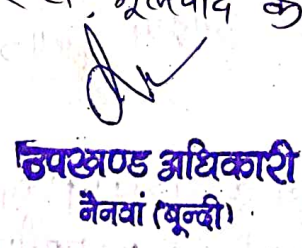 मूलवाद क
उपखण्ड अधिकारी
नैनवां (बून्दी)